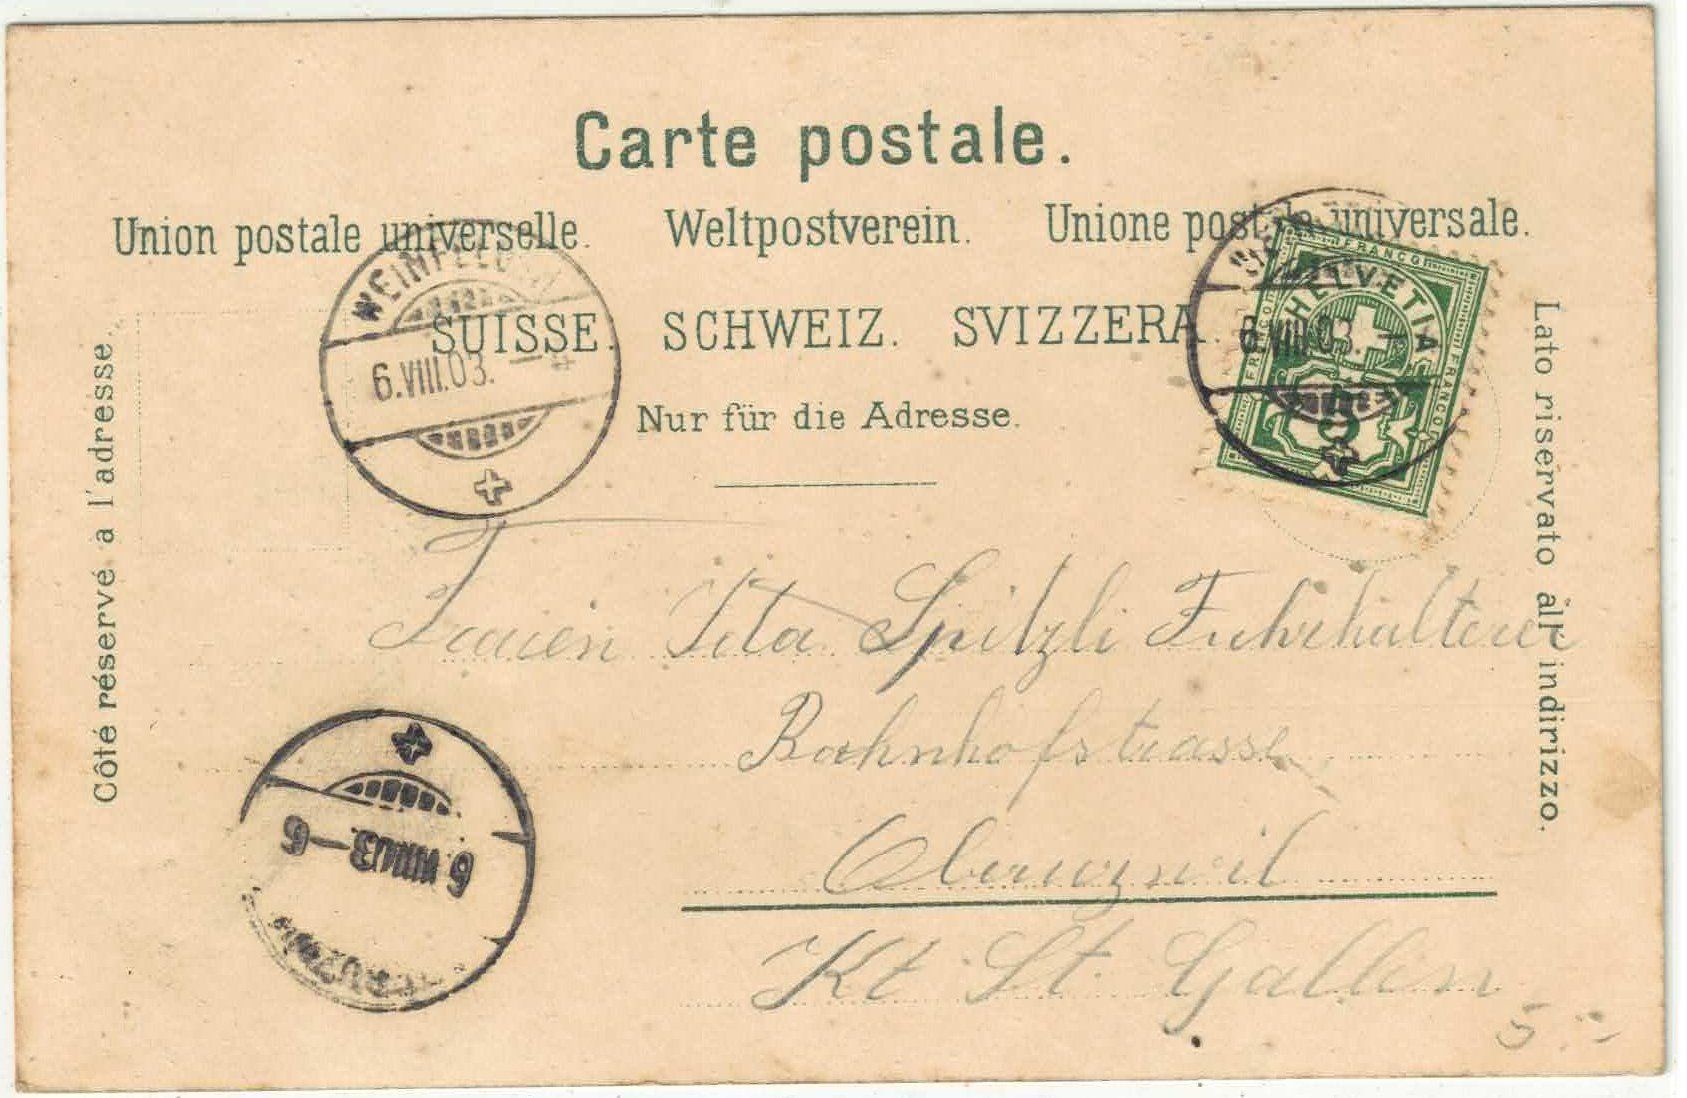 Carte postale.
Union postale universelle. Weltpostverein. Unione postale universale.
SUISSE. SCHWEIZ. SVIZZERA.
Nur für die Adresse.
Côté réservé a l'adresse.
Lato riservato all' indirizzo.
WEINFELDEN
6.VIII.03. –
FRANCO
HELVETIA
FRANCO
FRANCO
5
6.VIII.03. –
Ida Spitzli Fuhrhalterei
Bahnhofstrasse
Oberuzwil
Kt St. Gallen
6.VIII.03–6
5.-